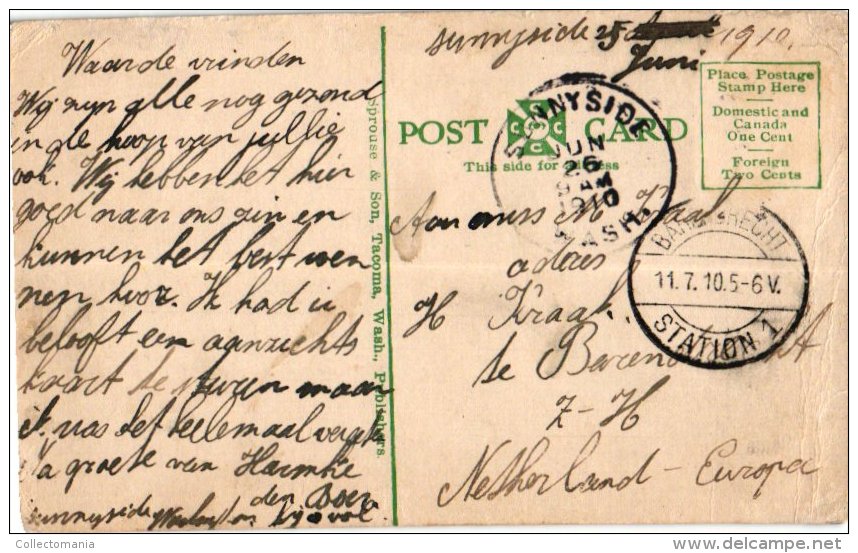 sunnyside 25
Juni 1910.
Waarde vrinden
Wij zijn alle nog gezond
in de hoop van jullie
ook. Wij hebben het hier
goed naar ons zin en
kunnen het best wen
nen hoor. Ik had u
belooft een aanzichts
kaart te sturen maar
ik was het heelemaal
Na groete van Harmke
den Boer
sunnyside
Sprouse & Son, Tacoma, Wash., Publishers.
POST CARD
This side for address
Place Postage
Stamp Here
Domestic and
Canada
One Cent
Foreign
Two Cents
SUNNYSIDE
JUN
26
AM
1910
WASH.
BARENDRECHT
11.7.10.5-6V.
STATION 1
Aan miss M Kraal
adres
H Kraal.
te Barendrecht
Z-H
Netherland-Europa
Collectomania
delcampe.net